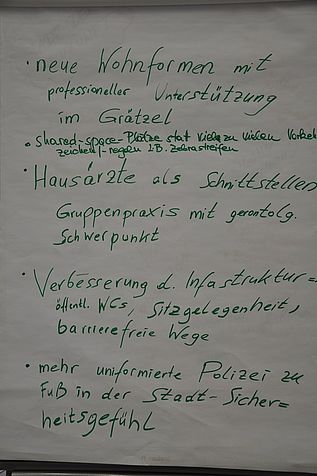 · neue Wohnformen mit
professioneller Unterstützung
im Grätzel
• Shared-space-Plätze statt viel zu vielen Verkehr
zeichen/-regeln z.B. Zebrastreifen
· Hausärzte als Schnittstellen
Gruppenpraxis mit gerontolg.
Schwerpunkt
· Verbesserung d. Infastruktur=
öffentl. WCs, Sitzgelegenheit,
barrierefreie Wege
• mehr uniformierte Polizei zu
Fuß in der Stadt - Sicher=
heitsgefühl